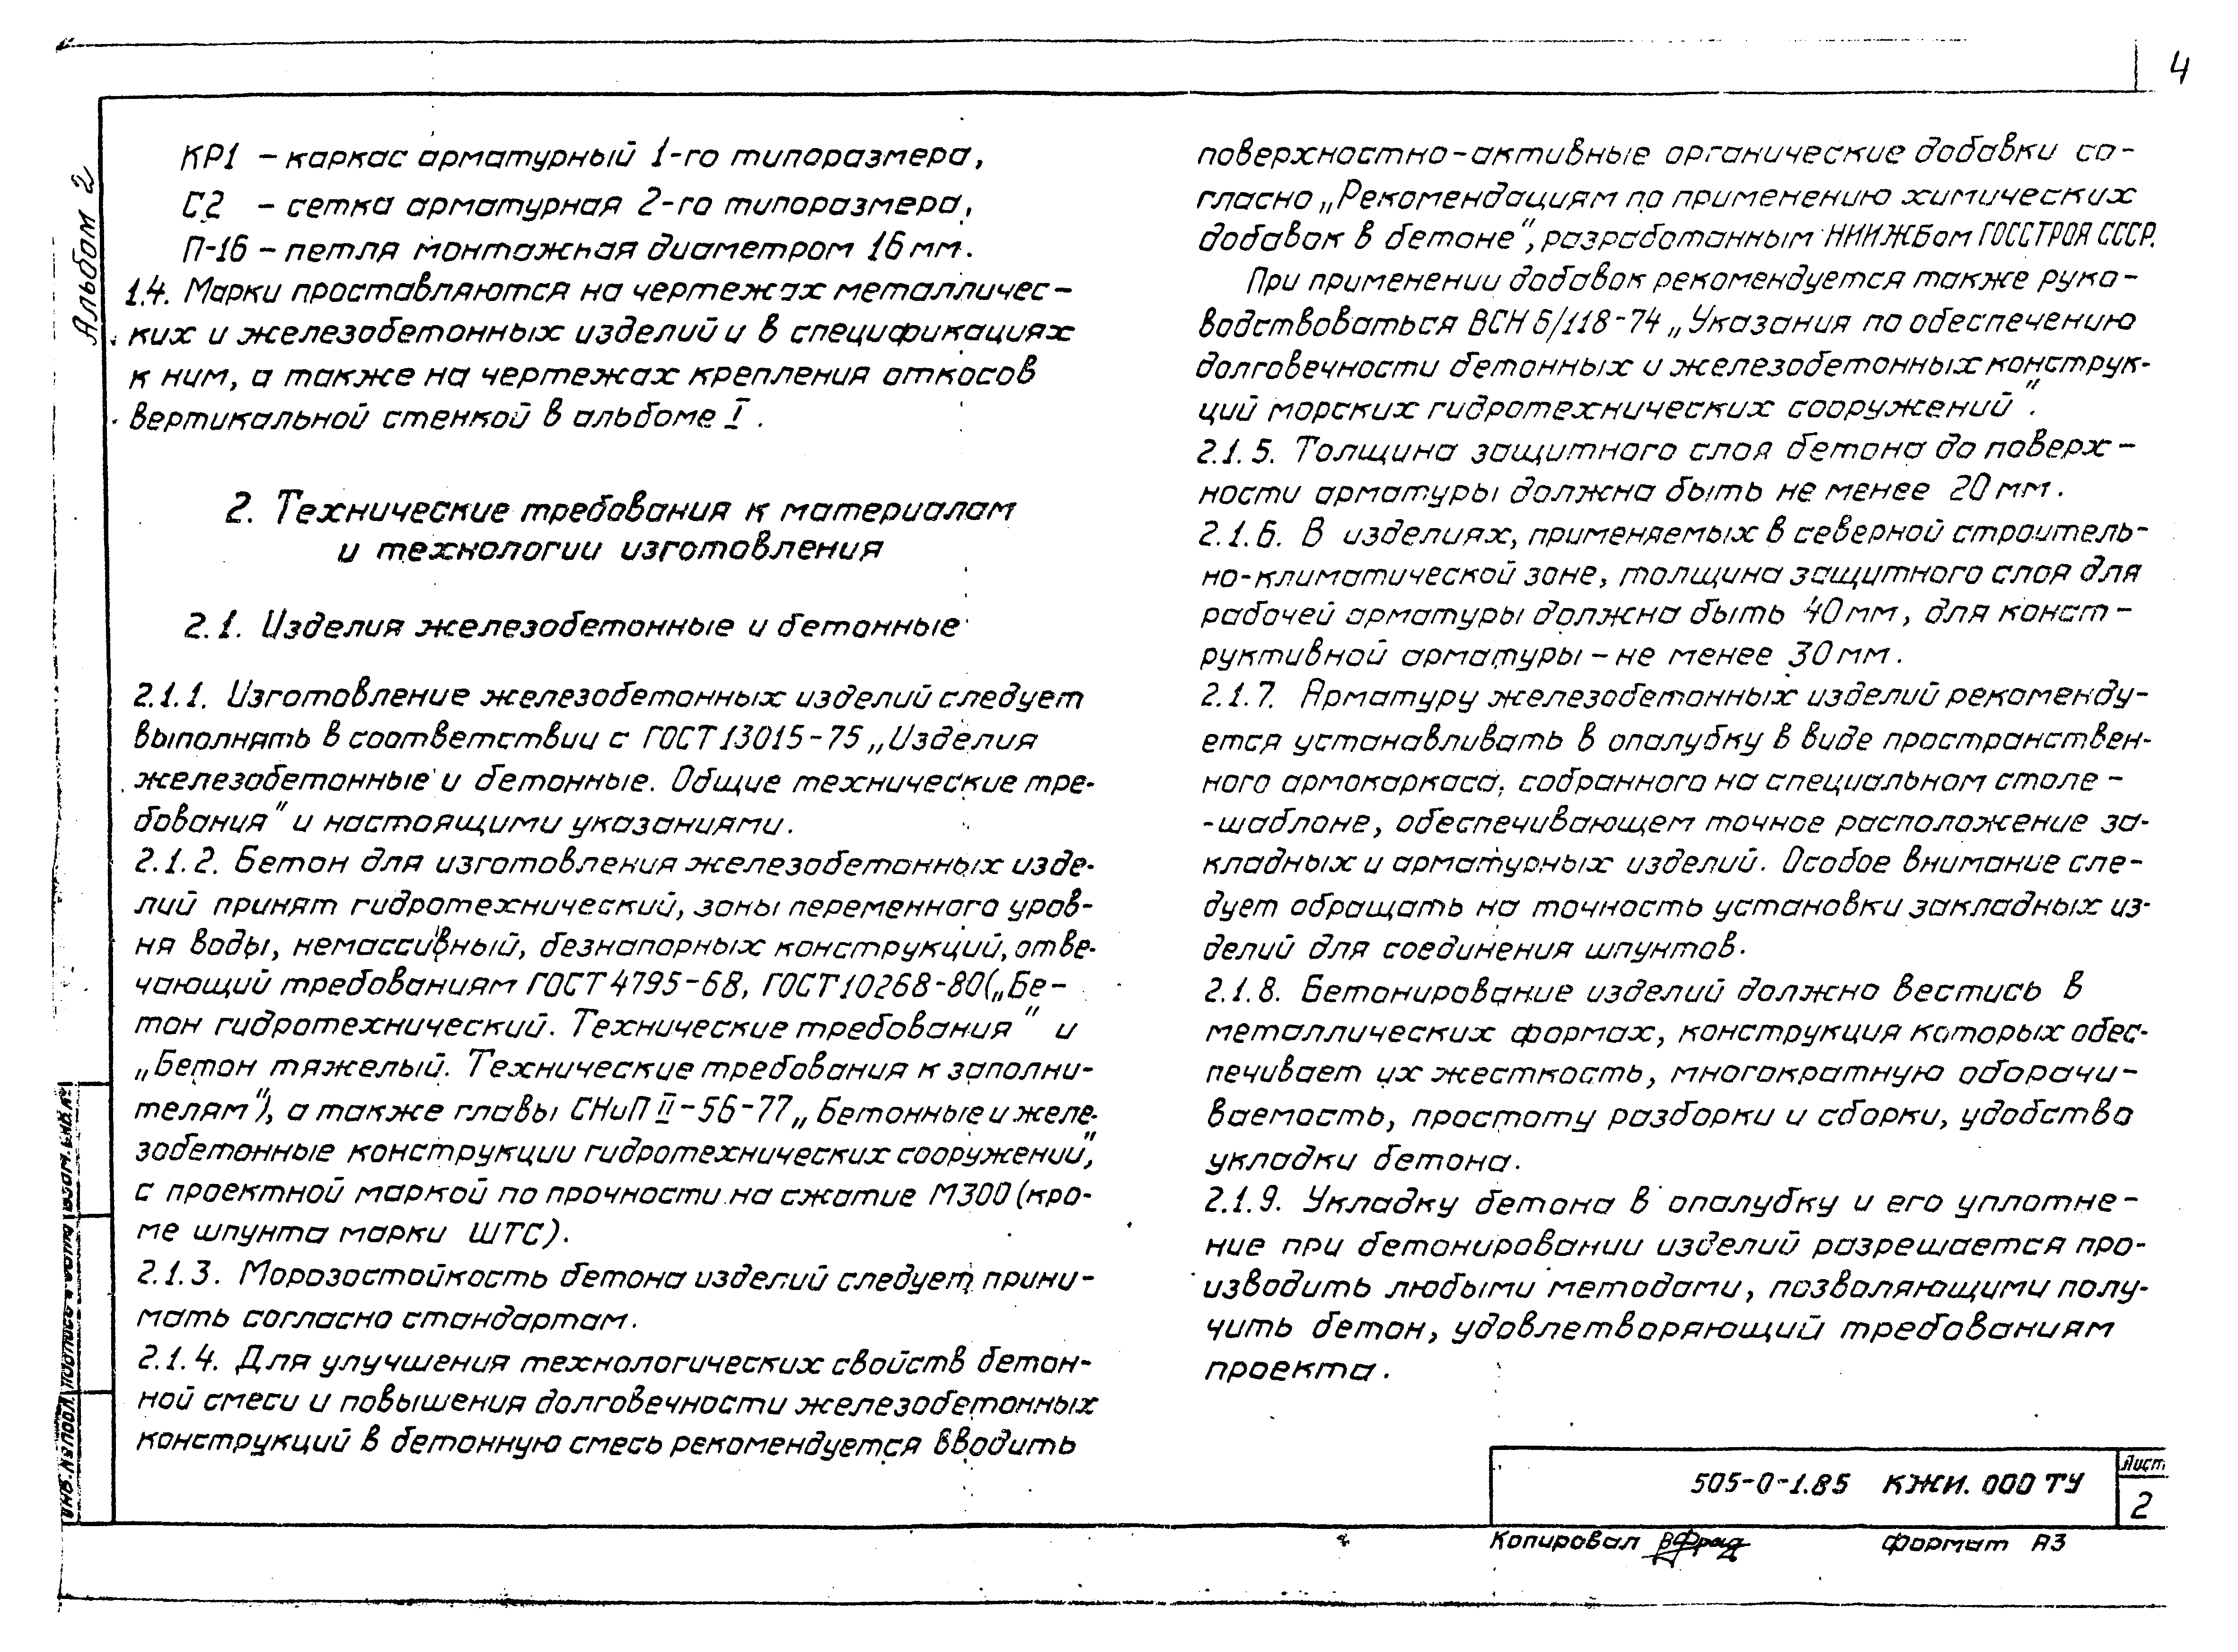 4
Альбом 2
КР1 – каркас арматурный 1-го типоразмера,
С2 – сетка арматурная 2-го типоразмера,
П-16 – петля монтажная диаметром 16 мм.
1.4. Марки проставляются на чертежах металличес-
ких и железобетонных изделий и в спецификациях
к ним, а также на чертежах крепления откосов
вертикальной стенкой в альбоме I.
2. Технические требования к материалам
и технологии изготовления
2.1. Изделия железобетонные и бетонные
2.1.1. Изготовление железобетонных изделий следует
выполнять в соответствии с ГОСТ 13015-75 „Изделия
железобетонные и бетонные. Общие технические тре-
бования" и настоящими указаниями.
2.1.2. Бетон для изготовления железобетонных изде-
лий принят гидротехнический, зоны переменного уров-
ня воды, немассивный, безнапорных конструкций, отве-
чающий требованиям ГОСТ 4795-68, ГОСТ 10268-80(„Бе-
тон гидротехнический. Технические требования" и
„Бетон тяжелый. Технические требования к заполни-
телям"), а также главы СНиП II-56-77 „Бетонные и желе-
зобетонные конструкции гидротехнических сооружений",
с проектной маркой по прочности на сжатие М300 (кро-
ме шпунта марки ШТС).
2.1.3. Морозостойкость бетона изделий следует прини-
мать согласно стандартам.
2.1.4. Для улучшения технологических свойств бетон-
ной смеси и повышения долговечности железобетонных
конструкций в бетонную смесь рекомендуется вводить
поверхностно-активные органические добавки со-
гласно „Рекомендациям по применению химических
добавок в бетоне", разработанным НИИЖБом ГОССТРОЯ СССР.
При применении добавок рекомендуется также руко-
водствоваться ВСН 6/118-74 „Указания по обеспечению
долговечности бетонных и железобетонных конструк-
ций морских гидротехнических сооружений".
2.1.5. Толщина защитного слоя бетона до поверх-
ности арматуры должна быть не менее 20 мм.
2.1.6. В изделиях, применяемых в северной строитель-
но-климатической зоне, толщина защитного слоя для
рабочей арматуры должна быть 40 мм, для конст-
руктивной арматуры – не менее 30 мм.
2.1.7. Арматуру железобетонных изделий рекоменду-
ется устанавливать в опалубку в виде пространствен-
ного армокаркаса, собранного на специальном столе-
-шаблоне, обеспечивающем точное расположение за-
кладных и арматурных изделий. Особое внимание сле-
дует обращать на точность установки закладных из-
делий для соединения шпунтов.
2.1.8. Бетонирование изделий должно вестись в
металлических формах, конструкция которых обес-
печивает их жесткость, многократную оборачи-
ваемость, простоту разборки и сборки, удобство
укладки бетона.
2.1.9. Укладку бетона в опалубку и его уплотне-
ние при бетонировании изделий разрешается про-
изводить любыми методами, позволяющими полу-
чить бетон, удовлетворяющий требованиям
проекта.
Инв. № подл. Подпись и дата Взам. инв. №
505-0-1.85 КЖИ. 000 ТУ
Лист
2
Копировал
Формат А3